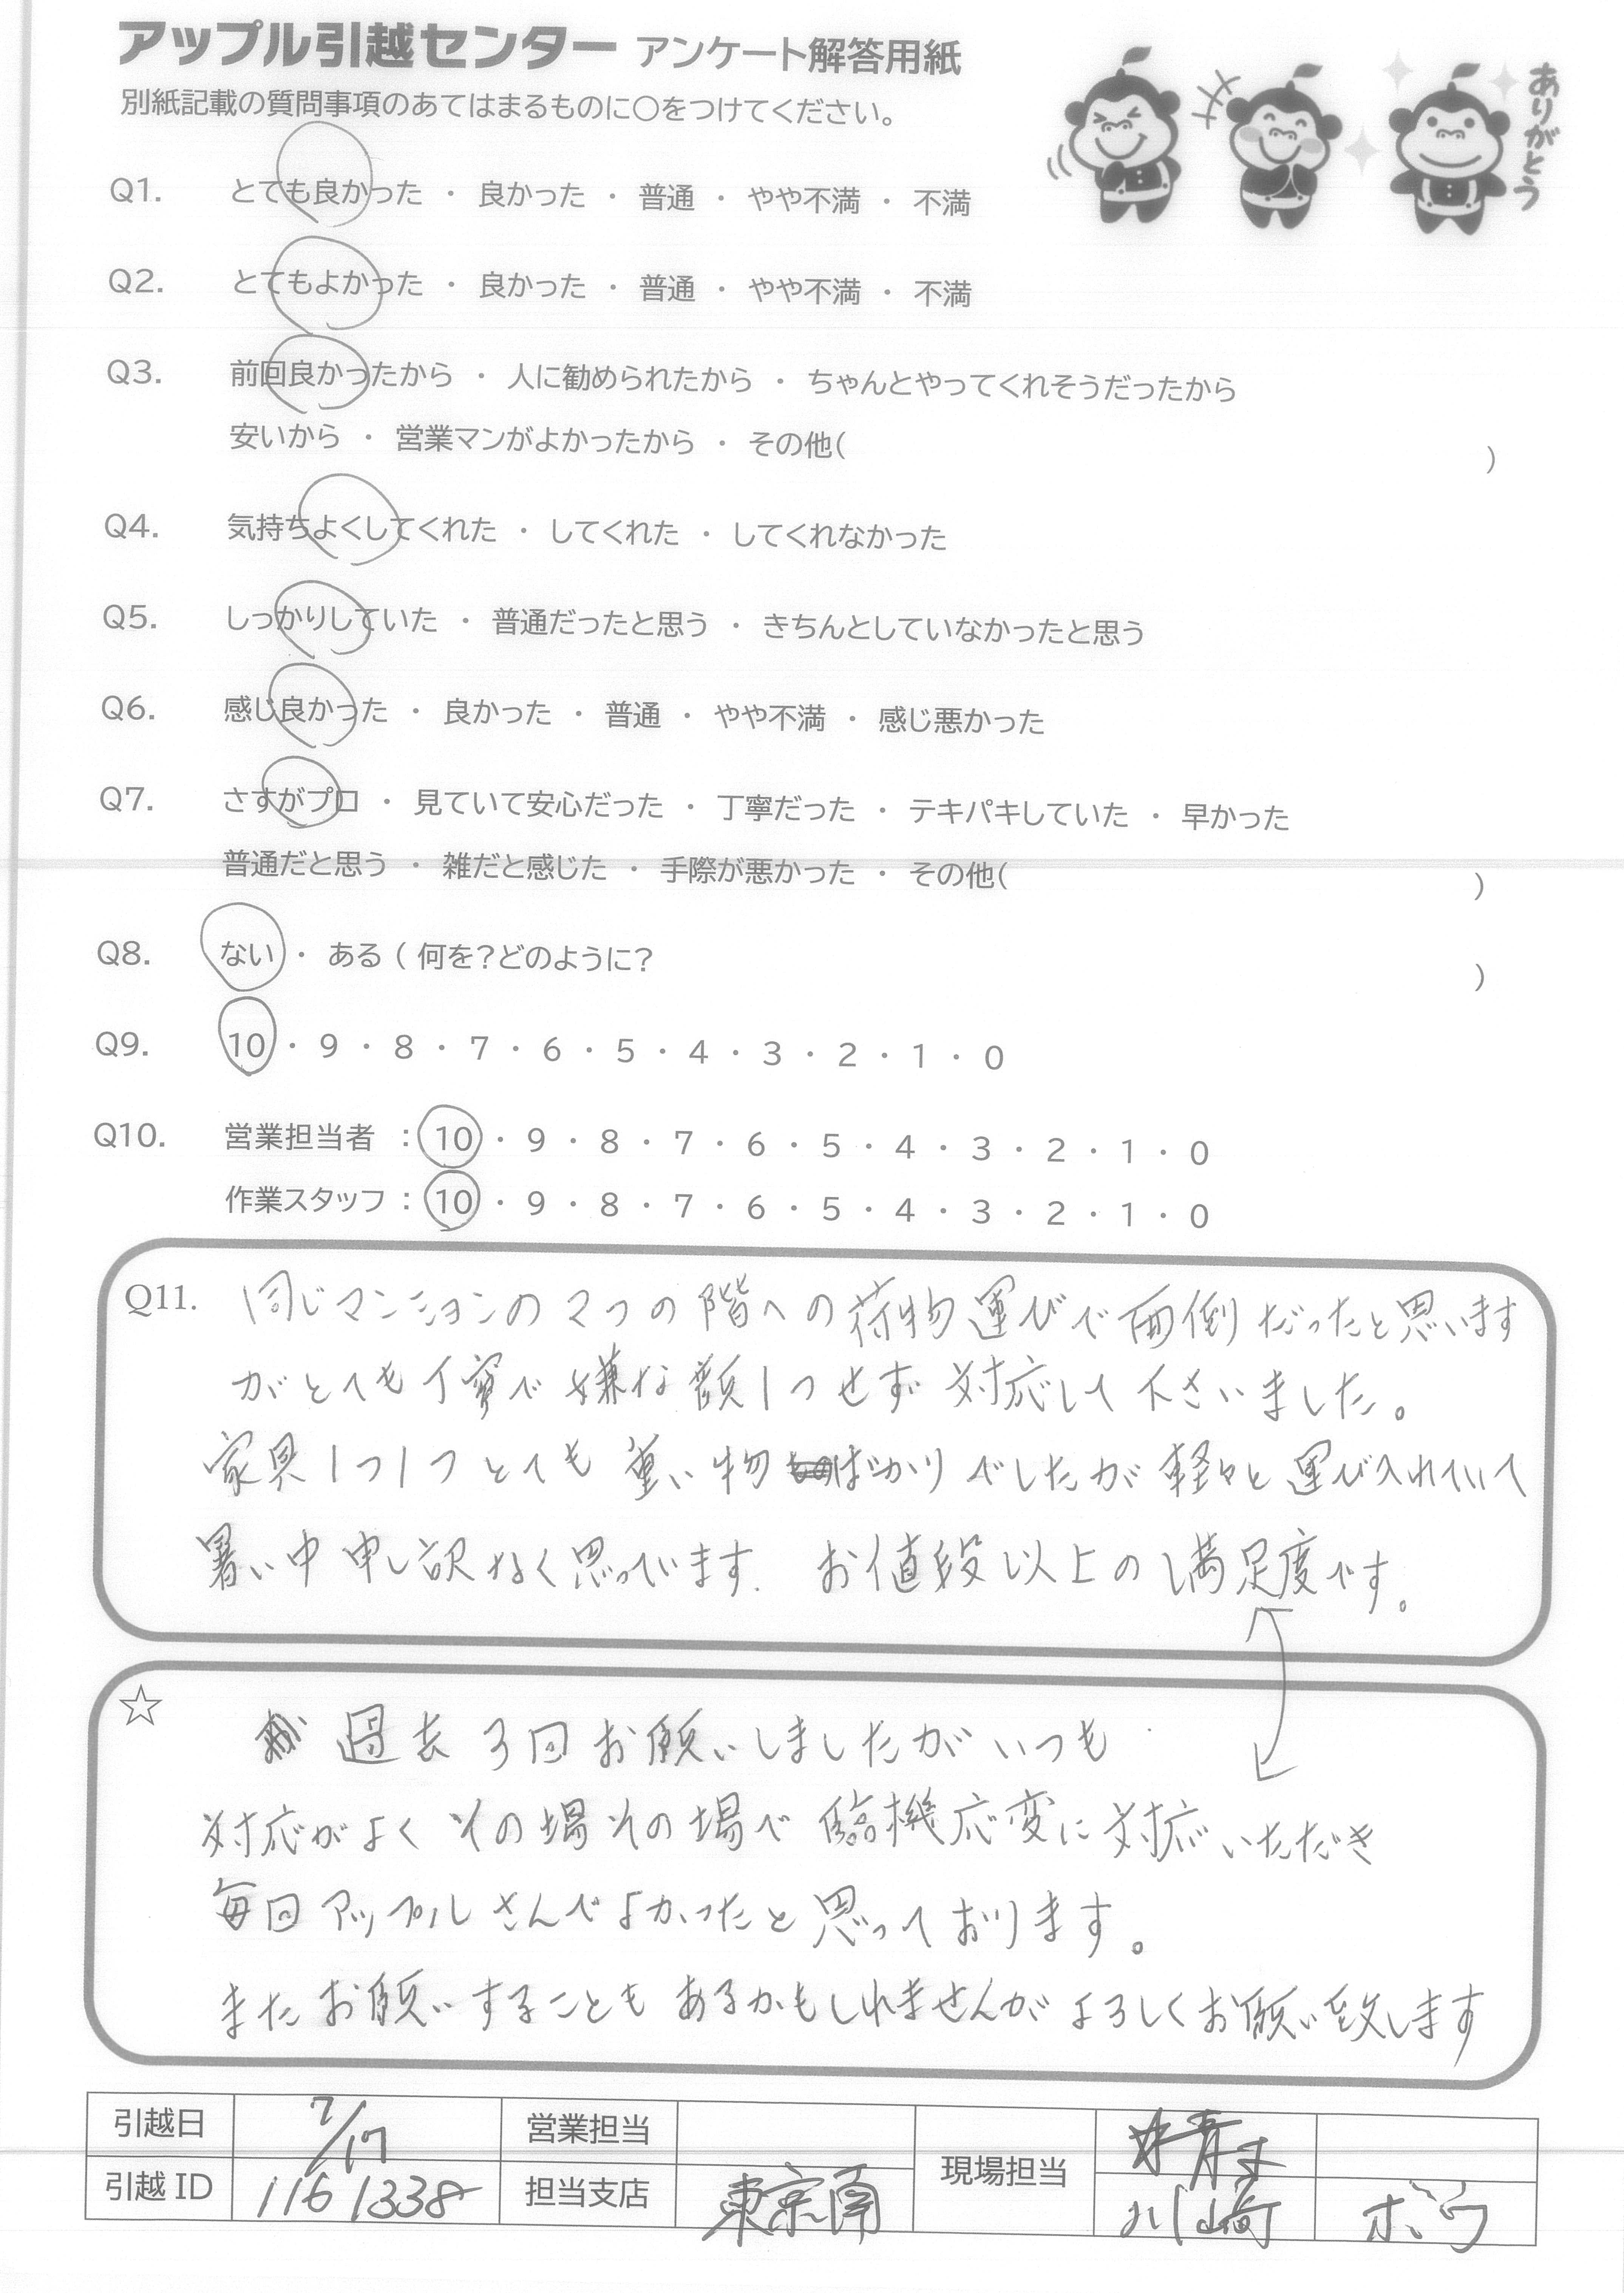 アップル引越センター アンケート解答用紙
別紙記載の質問事項のあてはまるものに〇をつけてください。
ありがとう
Q1. とても良かった ・ 良かった ・ 普通 ・ やや不満 ・ 不満
Q2. とてもよかった ・ 良かった ・ 普通 ・ やや不満 ・ 不満
Q3. 前回良かったから ・ 人に勧められたから ・ ちゃんとやってくれそうだったから
安いから ・ 営業マンがよかったから ・ その他( )
Q4. 気持ちよくしてくれた ・ してくれた ・ してくれなかった
Q5. しっかりしていた ・ 普通だったと思う ・ きちんとしていなかったと思う
Q6. 感じ良かった ・ 良かった ・ 普通 ・ やや不満 ・ 感じ悪かった
Q7. さすがプロ ・ 見ていて安心だった ・ 丁寧だった ・ テキパキしていた ・ 早かった
普通だと思う ・ 雑だと感じた ・ 手際が悪かった ・ その他( )
Q8. ない ・ ある ( 何を?どのように? )
Q9. 10 ・ 9 ・ 8 ・ 7 ・ 6 ・ 5 ・ 4 ・ 3 ・ 2 ・ 1 ・ 0
Q10. 営業担当者 : 10 ・ 9 ・ 8 ・ 7 ・ 6 ・ 5 ・ 4 ・ 3 ・ 2 ・ 1 ・ 0
作業スタッフ : 10 ・ 9 ・ 8 ・ 7 ・ 6 ・ 5 ・ 4 ・ 3 ・ 2 ・ 1 ・ 0
Q11. 同じマンションの2つの階への荷物運びで面倒だったと思います
がとても丁寧で嫌な顔1つせず対応して下さいました。
家具1つ1つとても重い物ばかりでしたが軽々と運び入れていて
暑い中申し訳なく思っています. お値段以上の満足度です。
☆ 過去3回お願いしましたがいつも
対応がよくその場その場で臨機応変に対応いただき
毎回アップルさんでよかったと思っております。
またお願いすることもあるかもしれませんがよろしくお願い致します
引越日 7/17 営業担当 現場担当
引越ID 1161338 担当支店 東京南 川崎 ボウ